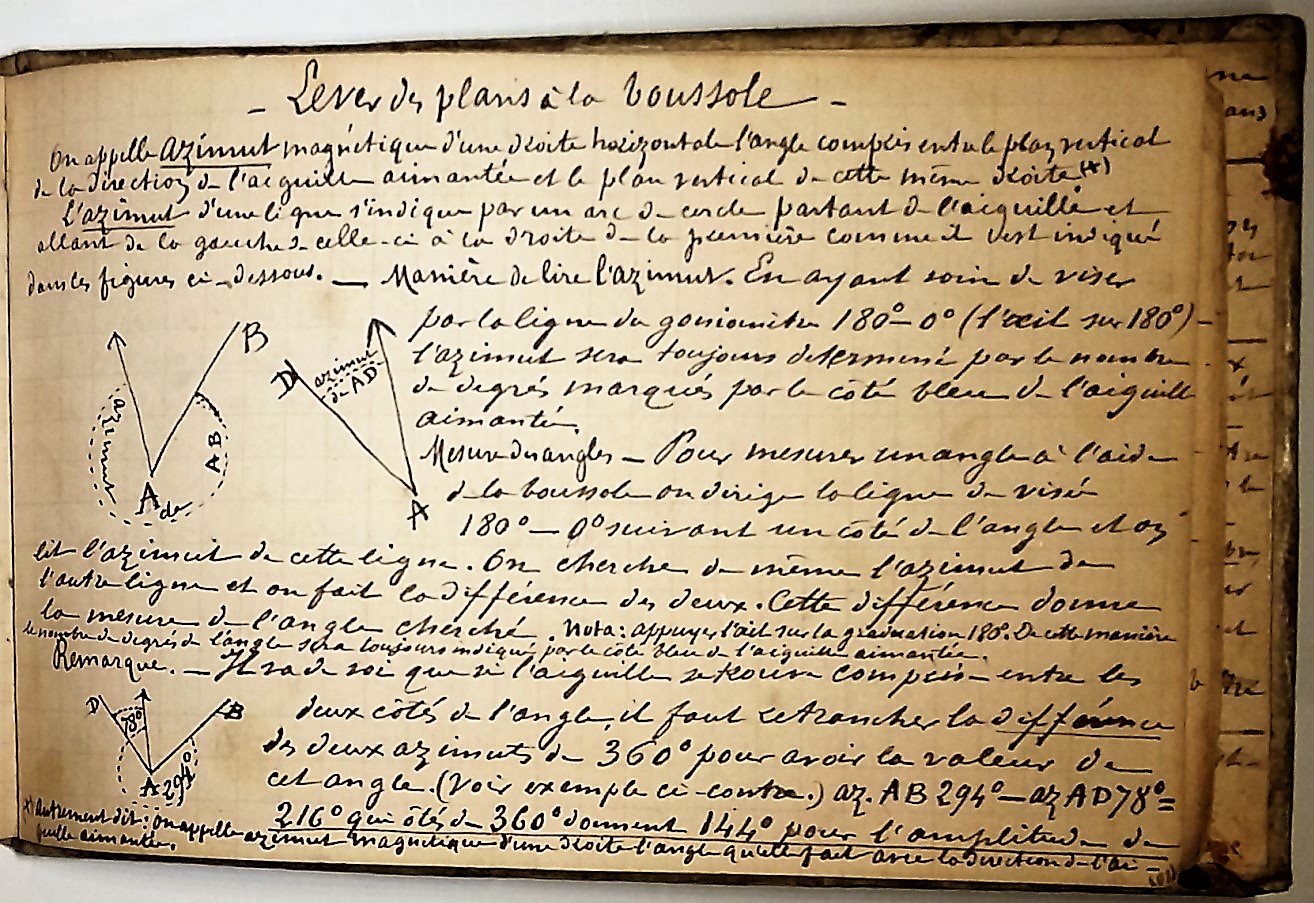 - Lever des plans à la boussole -
On appelle azimut magnétique d'une droite horizontale l'angle compris entre le plan vertical
de la direction de l'aiguille aimantée et le plan vertical de cette même droite (*)
L'azimut d'une ligne s'indique par un arc de cercle partant de l'aiguille et
allant de la gauche de celle-ci à la droite de la première comme il vest indiqué
dans les figures ci-dessous. — Manière de lire l'azimut. En ayant soin de viser
par la ligne du goniomètre 180° - 0° (l'œil sur 180°) -
l'azimut sera toujours déterminé par le nombre
de degrés marqués par le côté bleu de l'aiguille
aimantée.
B
D
azimut
de AD
azimut
AB
A
de
A
Mesure des angles — Pour mesurer un angle à l'aide
de la boussole on dirige la ligne de visée
180° - 0° suivant un côté de l'angle et on
lit l'azimut de cette ligne. On cherche de même l'azimut de
l'autre ligne et on fait la différence des deux. Cette différence donne
la mesure de l'angle cherché. Nota: appuyer l'œil sur la graduation 180°. De cette manière
le nombre de degrés de l'angle sera toujours indiqué par le côté bleu de l'aiguille aimantée.
Remarque. — Il va de soi que si l'aiguille se trouve comprise entre les
deux côtés de l'angle il faut retrancher la différence
des deux azimuts de 360° pour avoir la valeur de
cet angle. (Voir exemple ci-contre.) az. AB 294° - az AD 78° =
216° qui ôtés de 360° donnent 144° pour l'amplitude de
D
78°
B
A
294°
(*) autrement dit: On appelle azimut magnétique d'une droite l'angle qu'elle fait avec la direction de l'ai-
guille aimantée.